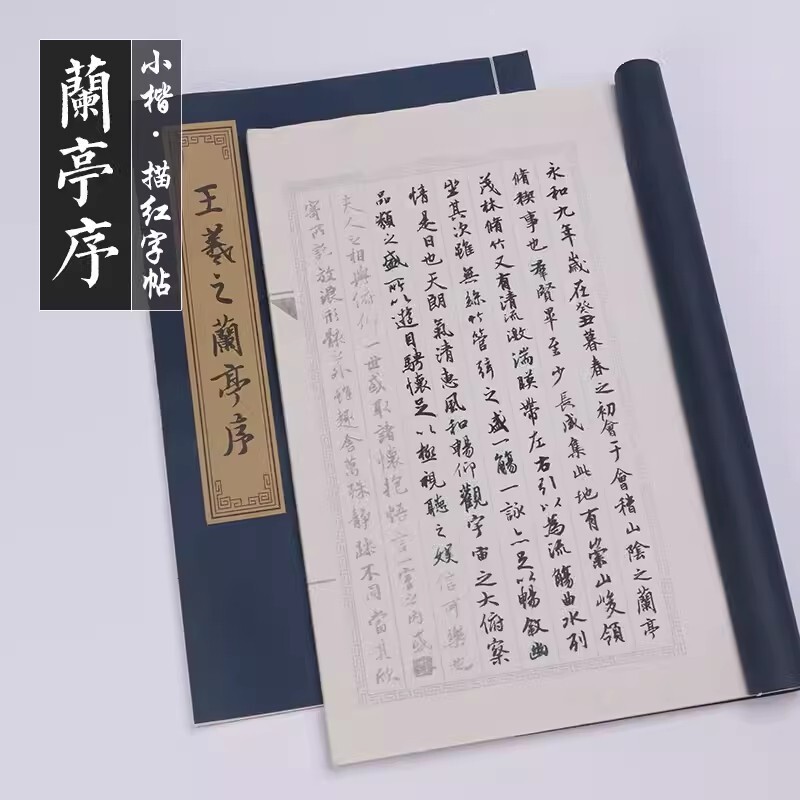 蘭亭序
小楷·描红字帖
王羲之蘭亭序
永和九年歲在癸丑暮春之初會于會稽山陰之蘭亭
脩稧事也羣賢畢至少長咸集此地有崇山峻領
茂林脩竹又有清流激湍暎帶左右引以為流觴曲水列
坐其次雖無絲竹管弦之盛一觴一詠亦足以暢敘幽
情是日也天朗氣清惠風和暢仰觀宇宙之大俯察
品類之盛所以遊目騁懷足以極視聽之娛信可樂也
夫人之相與俯仰一世或取諸懷抱悟言一室之內或
寄所託放浪形骸之外雖趣舍萬殊靜躁不同當其欣